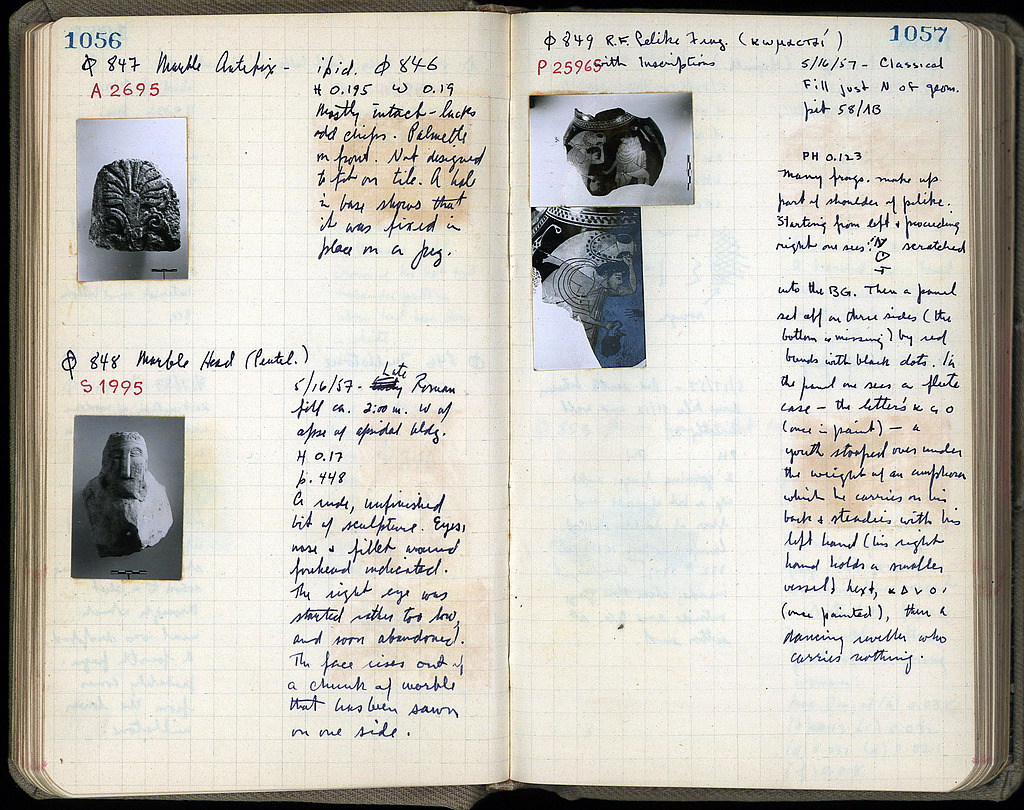 1056
Φ 847 Marble Antefix -
A 2695
ibid. Φ 846
H 0.195 W 0.19
Mostly intact - lacks
odd chips. Palmette
on front. Not designed
to fit on tile. A hole
in base shows that
it was fixed in
place on a peg.
Φ 848 Marble Head (Pentel.)
S 1995
5/16/57 - Late Roman
fill ca. 2.00 m. W of
apse of apsidal bldg.
H 0.17
p. 448
A rude, unfinished
bit of sculpture. Eyes,
nose & fillet around
forehead indicated.
The right eye was
started rather too low,
and soon abandoned.
The face rises out of
a chunk of marble
that has been sawn
on one side.
1057
Φ 849 R.F. Pelike Frag. (κωμασταί)
P 25965 with Inscriptions
5/16/57 - Classical
Fill just N of geom.
pit 58/ΙΒ
PH 0.123
Many frags. make up
part of shoulder of pelike.
Starting from left & proceeding
right one sees: scratched
into the BG. Then a panel
set off on three sides (the
bottom is missing) by red
bands with black dots. In
the panel one sees a flute
case - the letters
(once in paint) - a
youth stooped over under
the weight of an amphora
which he carries on his
back & steadies with his
left hand (his right
hand holds a smaller
vessel) next,
(once painted), then a
dancing reveller who
carries nothing.